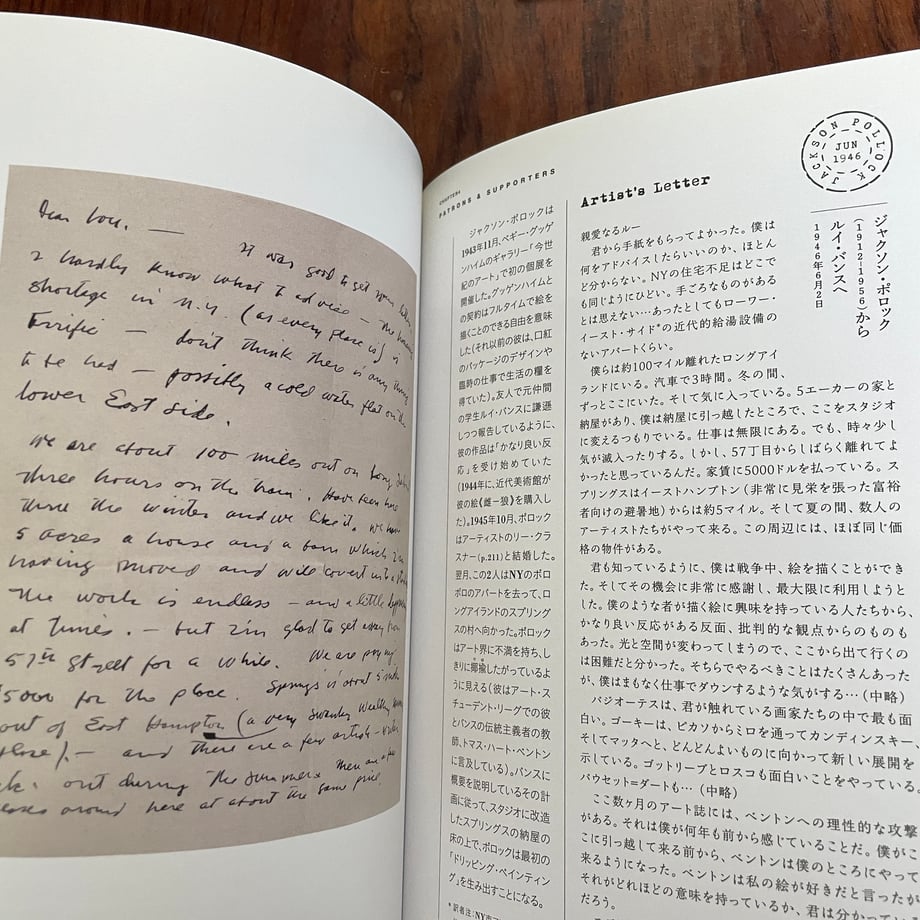 Dear Lou. — It was good to get your letter
I hardly know what to advice — the housing
shortage in N.Y. (as every place is) is
terrific — don't think there is any thing
to be had — possibly a cold water flat on the
lower East side.
We are about 100 miles out on Long Island
three hours on the train. Have been here
thru the winter and we like it. We have
5 acres a house and a barn which I'm
having moved and will covert into a
The work is endless — and a little
at times. — but I'm glad to get away from
57th street for a while. We are paying
5000 for the place. Springs is about 5 miles
out of East Hampton (a very swanky wealthy
place). — and there are a few artist — writers
out during the summer. There are a few
around here at about the same price.
CHAPTER4
PATRONS & SUPPORTERS
ジャクソン・ポロックは
1943年11月、ペギー・グッゲ
ンハイムのギャラリー「今世
紀のアート」で初の個展を
開催した。グッゲンハイムと
の契約はフルタイムで絵を
描くことのできる自由を意味
した(それ以前の彼は、口紅
のパッケージのデザインや
臨時の仕事で生活の糧を
得ていた)。友人で元仲間
の学生ルイ・バンスに謙遜
しつつ報告しているように、
彼の作品は「かなり良い反
応」を受け始めていた
(1944年に、近代美術館が
彼の絵《雌一狼》を購入し
た)。1945年10月、ポロック
はアーティストのリー・クラ
スナー(p.211)と結婚した。
翌月、この2人はNYのボロ
ボロのアパートを去って、ロ
ングアイランドのスプリング
スの村へ向かった。ポロック
はアート界に不満を持ち、し
きりに揶揄したがっているよ
うに見える(彼はアート・ス
チューデント・リーグでの彼
とバンスの伝統主義者の教
師、トマス・ハート・ベントン
に言及している)。バンスに
概要を説明しているその計
画に従って、スタジオに改造
したスプリングスの納屋の
床の上で、ポロックは最初の
「ドリッピング・ペインティン
グ」を生み出すことになる。
Artist's Letter
親愛なるルー
君から手紙をもらってよかった。僕は
何をアドバイスしたらいいのか、ほとん
ど分からない。NYの住宅不足はどこで
も同じようにひどい。手ごろなものがある
とは思えない…あったとしてもローワー・
イースト・サイド*の近代的給湯設備の
ないアパートくらい。
僕らは約100マイル離れたロングアイ
ランドにいる。汽車で3時間。冬の間、
ずっとここにいた。そして気に入っている。5エーカーの家と
納屋があり、僕は納屋に引っ越したところで、ここをスタジオ
に変えるつもりでいる。仕事は無限にある。でも、時々少し
気が滅入ったりする。しかし、57丁目からしばらく離れてよ
かったと思っているんだ。家賃に5000ドルを払っている。ス
プリングスはイーストハンプトン(非常に見栄を張った富裕
者向けの避暑地)からは約5マイル。そして夏の間、数人の
アーティストたちがやって来る。この周辺には、ほぼ同じ価
格の物件がある。
君も知っているように、僕は戦争中、絵を描くことができ
た。そしてその機会に非常に感謝し、最大限に利用しようと
した。僕のような者が描く絵に興味を持っている人たちから、
かなり良い反応がある反面、批判的な観点からのものも
あった。光と空間が変わってしまうので、ここから出て行くの
は困難だと分かった。そちらでやるべきことはたくさんあった
が、僕はまもなく仕事でダウンするような気がする…(中略)
バジオーテスは、君が触れている画家たちの中で最も面
白い。ゴーキーは、ピカソからミロを通ってカンディンスキー、
そしてマッタへと、どんどんよいものに向かって新しい展開を
示している。ゴットリーブとロスコも面白いことをやっている。
パウセット=ダートも…(中略)
ここ数ヶ月のアート誌には、ベントンへの理性的な攻撃
がある。それは僕が何年も前から感じていることだ。僕がこ
こに引っ越して来る前から、ベントンは僕のところにやって
来るようになった。ベントンは私の絵が好きだと言ったが
それがどれほどの意味を持っているか、君は分かってい
だろう。
JACKSON POLLOCK
JUN
1946
ジャクソン・ポロック
(1912–1956)から
ルイ・バンスへ
1946年6月2日